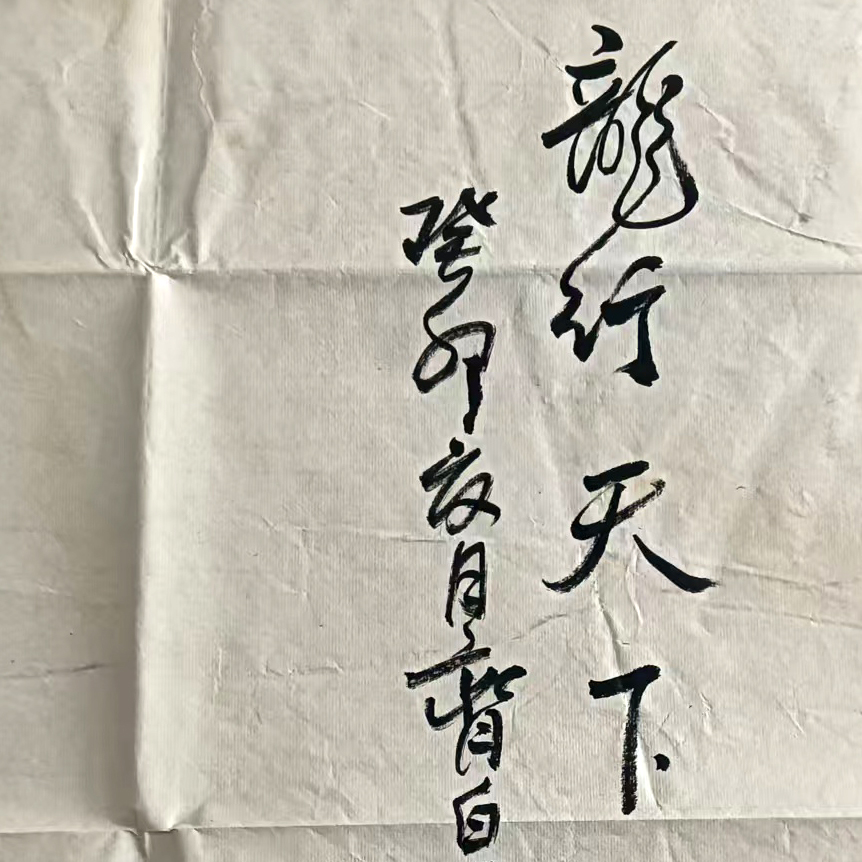 龍行天下
癸卯亥月齊白